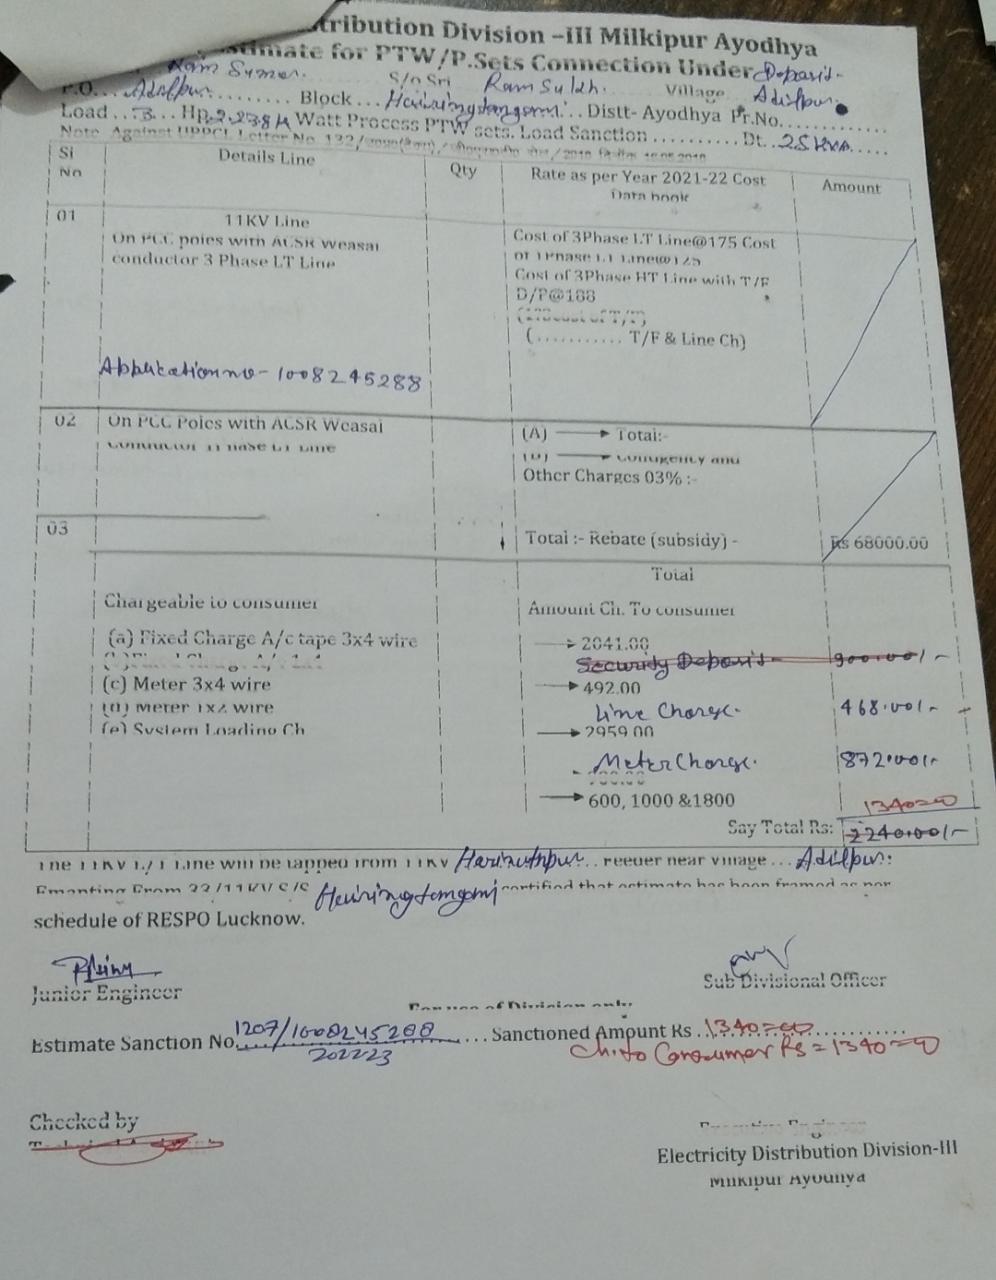 tribution Division -III Milkipur Ayodhya
stimate for PTW/P.Sets Connection Under Deposit-
Ram Sumer. S/o Sri Ram Sukh. Village Adilpur.
P.O... Adilpur......... Block ... Distt- Ayodhya Pr.No.............
Load ... 3. Hp. 2.238 Watt Process PTW sets. Load Sanction .......... Dt. 25 KVA......
Note Against UPPCL Letter No. 132/
Sl No Details Line Qty Rate as per Year 2021-22 Cost Data book Amount
01 11KV Line
On PCC poles with ACSR Weasal
conductor 3 Phase LT Line
Cost of 3Phase LT Line@175 Cost
of 1Phase LT Line@125
Cost of 3Phase HT Line with T/F
D/P@188
(........... T/F & Line Ch)
Application no - 1008245288
02 On PCC Poles with ACSR Weasal
Conductor 1Phase LT Line
(A) → Total:-
(B) → Contigency and
Other Charges 03% :-
03 Total :- Rebate (subsidy) - Rs 68000.00
Total
Chargeable to consumer Amount Ch. To consumer
(a) Fixed Charge A/c tape 3x4 wire → 2041.00
Security Deposit- 900.00/-
(c) Meter 3x4 wire → 492.00
(d) Meter 1x2 wire Line Charge. 468.00/-
(e) System Loading Ch → 2959.00
Meter Charge. 872.00/-
→ 600, 1000 &1800 1340=00
Say Total Rs: 2240.00/-
The 11KV L/T Line will be tapped from 11KV Harinathpur... feeder near village ... Adilpur.
Emanting From 33/11KV S/S certified that estimate has been framed as per
schedule of RESPO Lucknow.
Junior Engineer Sub Divisional Officer
For use of Division only.
Estimate Sanction No. 1207/1008245288 ... Sanctioned Amount Rs .1340=00...........
202223 Ch. to Consumer Rs = 1340=00
Checked by
Executive Engineer
Electricity Distribution Division-III
Milkipur Ayodhya